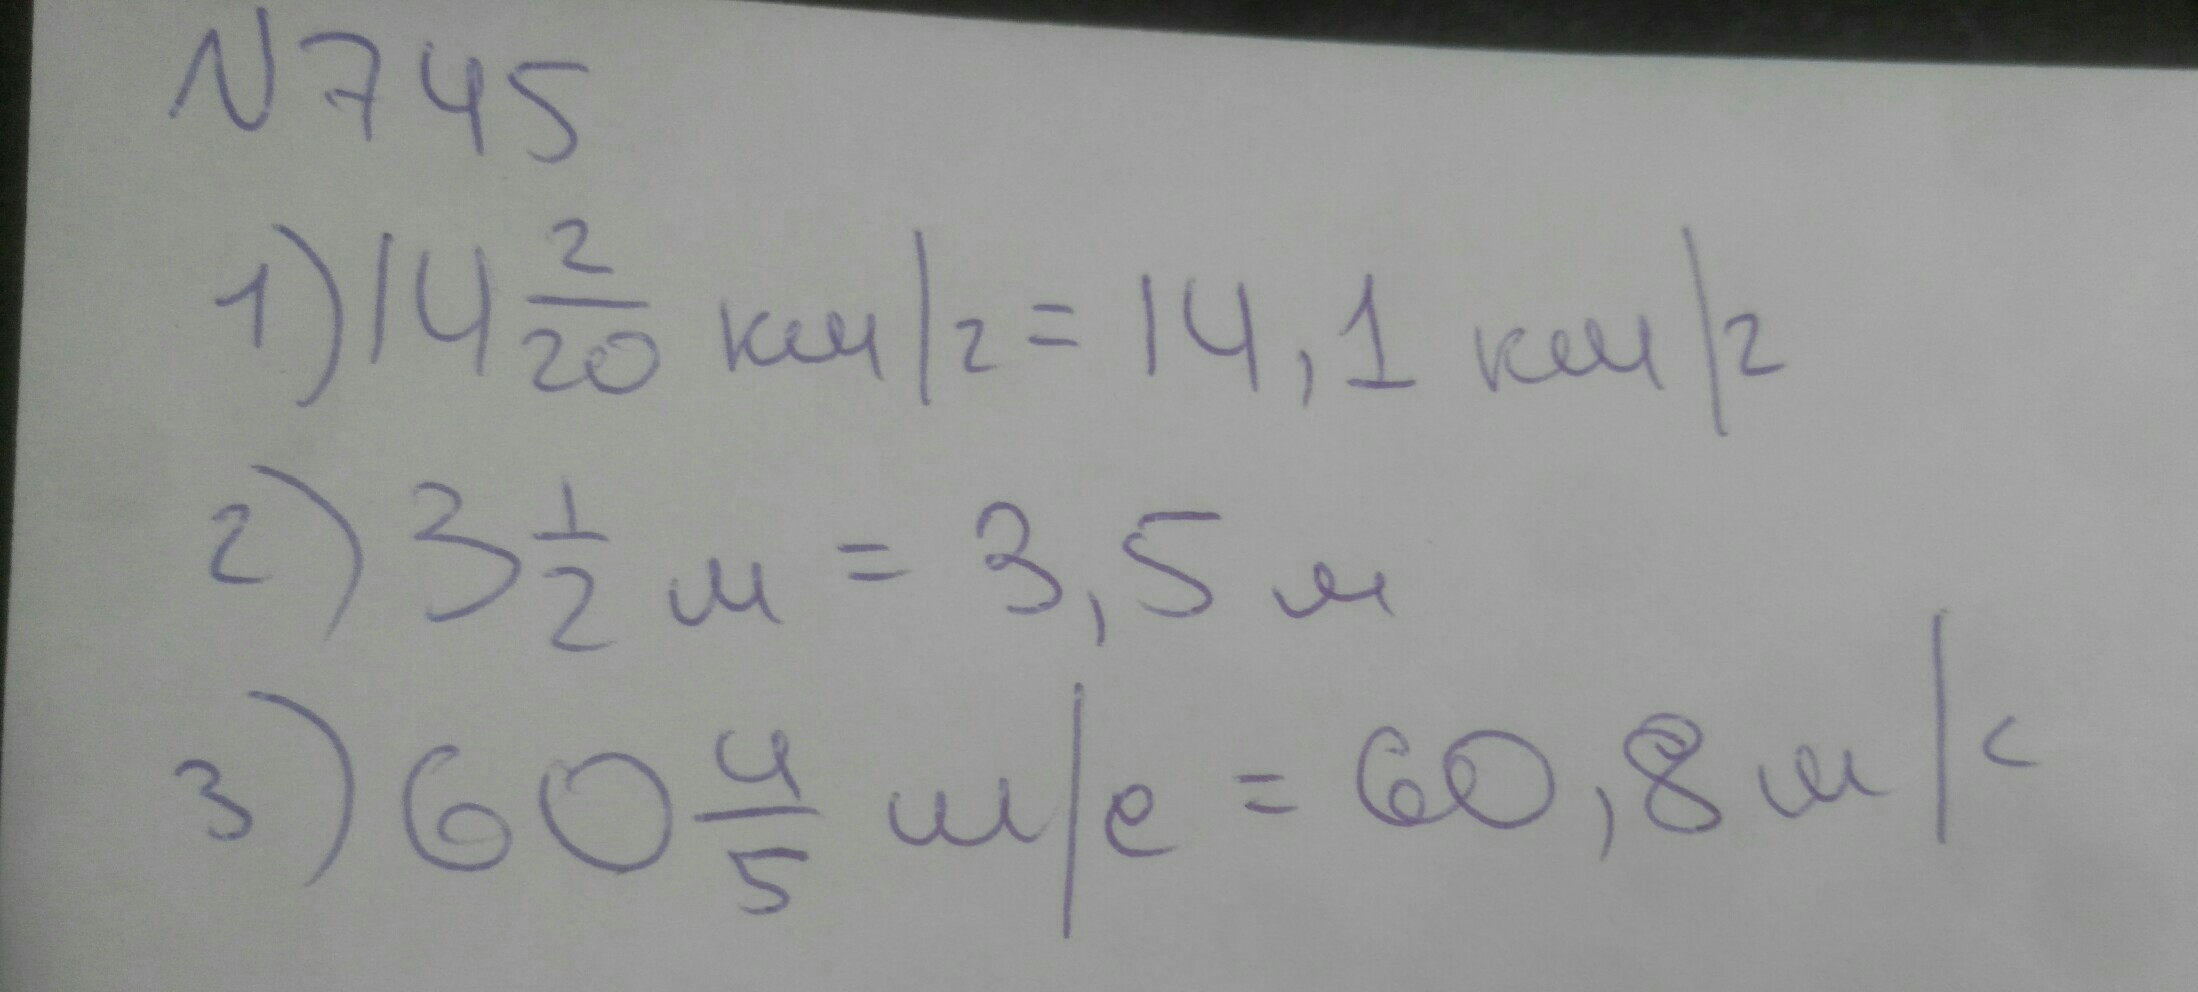 N745
1) 14 2/20 км/г = 14,1 км/г
2) 3 1/2 м = 3,5 м
3) 60 4/5 м/с = 60,8 м/с